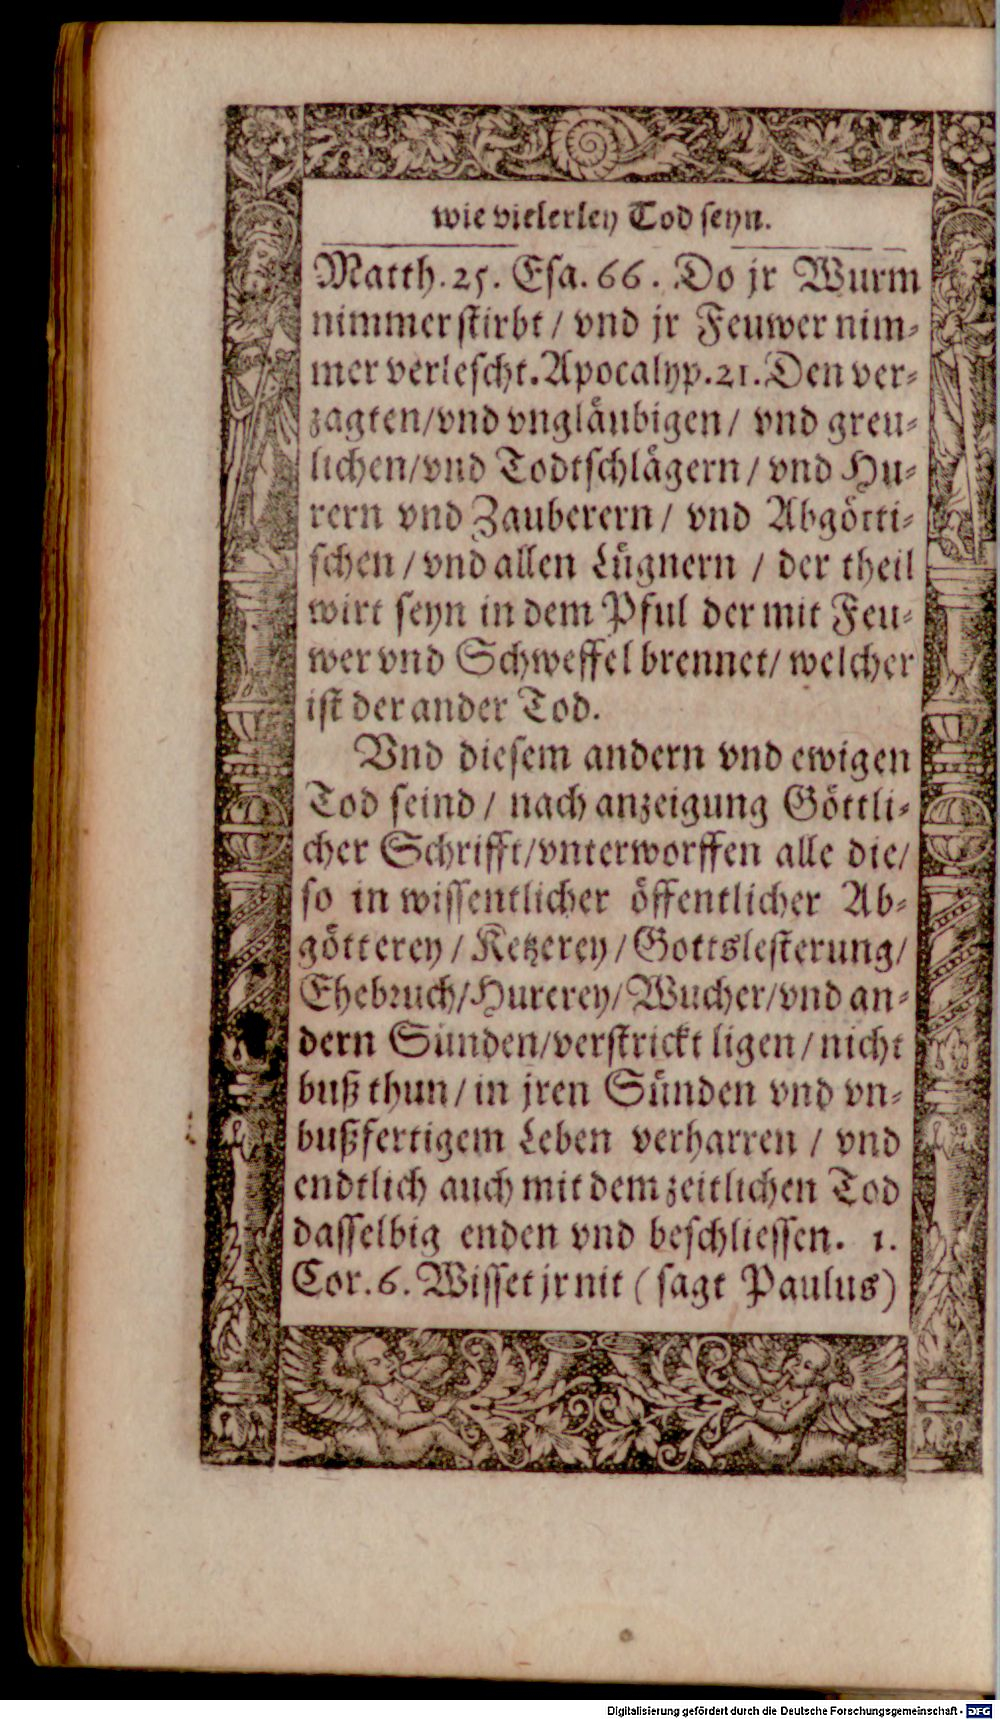 wie vielerley Tod seyn.
Matth. 25. Esa. 66. Do jr Wurm
nimmer stirbt / vnd jr Feuwer nim⸗
mer verlescht. Apocalyp. 21. Den ver⸗
zagten/vnd vngläubigen / vnd greu⸗
lichen/vnd Todtschlägern / vnd Hu⸗
rern vnd Zauberern / vnd Abgötti⸗
schen / vnd allen Lügnern / der theil
wirt seyn in dem Pful der mit Feu⸗
wer vnd Schweffel brennet/ welcher
ist der ander Tod.
Vnd diesem andern vnd ewigen
Tod seind / nach anzeigung Göttli⸗
cher Schrifft/vnterworffen alle die/
so in wissentlicher öffentlicher Ab⸗
götterey / Ketzerey / Gottslesterung/
Ehebruch/Hurerey/Wucher/vnd an⸗
dern Sünden/verstrickt ligen / nicht
buß thun / in jren Sünden vnd vn⸗
bußfertigem Leben verharren / vnd
endtlich auch mit dem zeitlichen Tod
dasselbig enden vnd beschliessen. 1.
Cor. 6. Wisset jr nit ( sagt Paulus)
Digitalisierung gefördert durch die Deutsche Forschungsgemeinschaft - DFG